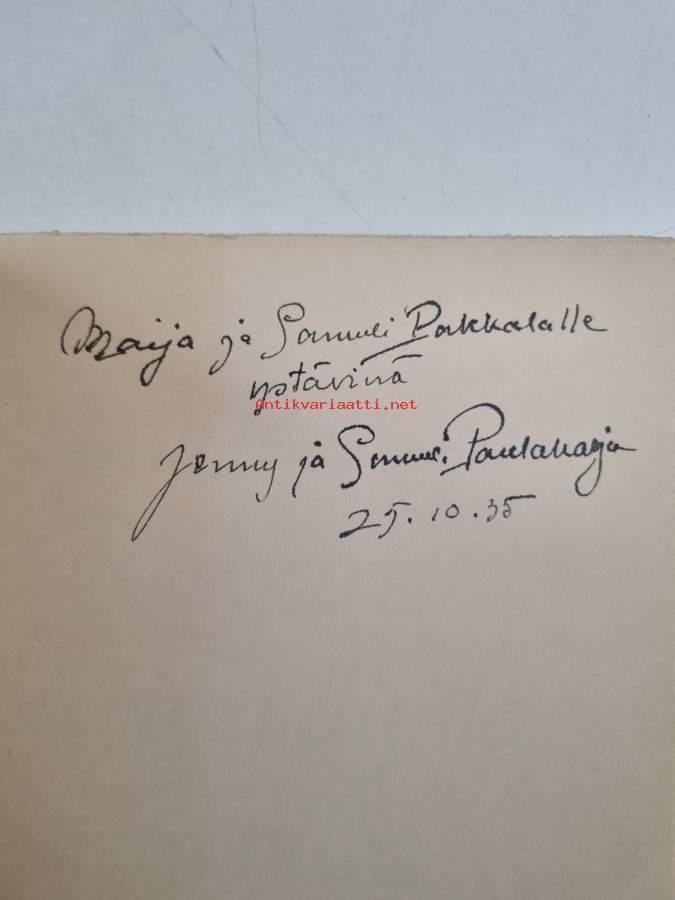 Maija ja Samuli Pakkalalle
ystävinä
Antikvariaatti.net
Jenny ja Samuli Paulaharju
25.10.35